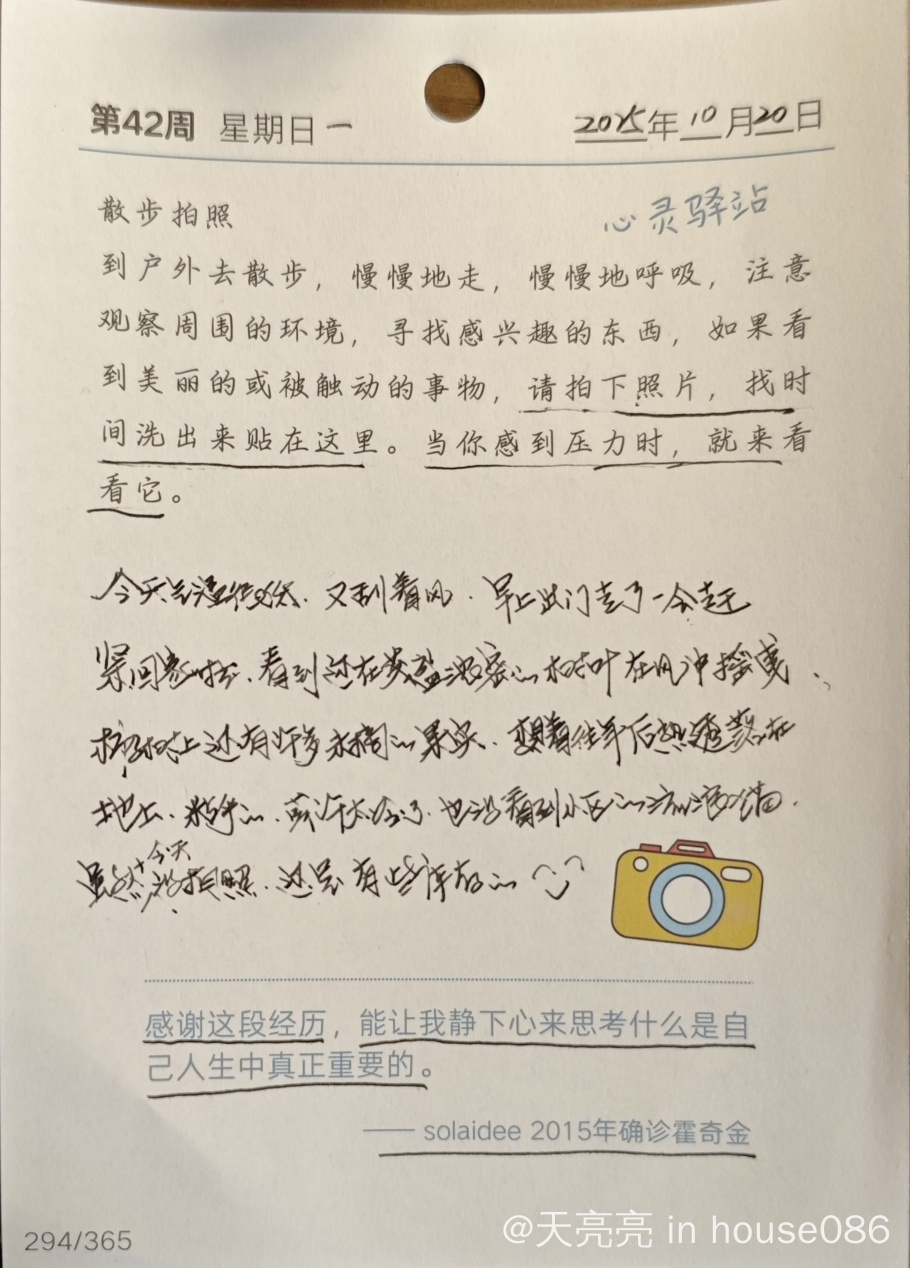 第42周 星期日一 2025年10月20日
散步拍照
心灵驿站
到户外去散步，慢慢地走，慢慢地呼吸，注意
观察周围的环境，寻找感兴趣的东西，如果看
到美丽的或被触动的事物，请拍下照片，找时
间洗出来贴在这里。当你感到压力时，就来看
看它。
今天 又刮着风．早上出门走了一会赶
紧回家 ．看到还在 的树叶在风中摇曳、
树上还有许多 的果实、 着往年后 落在
地上、 的、 也没看到小区的流浪猫．
虽然今天没拍照．还是有些 的
感谢这段经历，能让我静下心来思考什么是自
己人生中真正重要的。
—— solaidee 2015年确诊霍奇金
294/365
@天亮亮 in house086